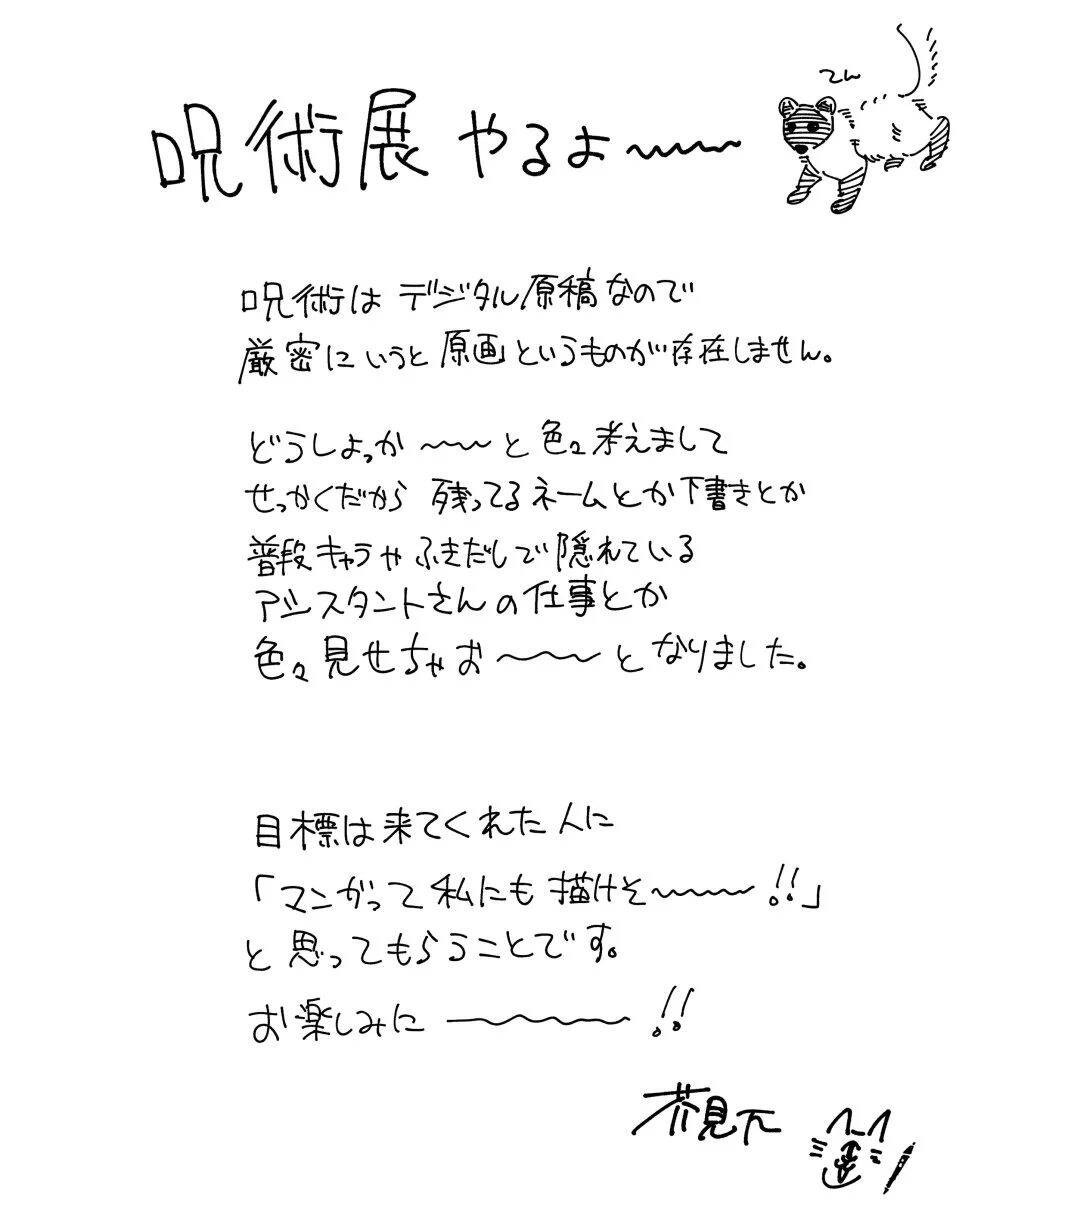 呪術展 やるよ〜〜〜
てん
呪術は デジタル原稿なので
厳密にいうと 原画というものが存在しません。
どうしよっか 〜〜〜 と 色々 考えまして
せっかくだから 残ってるネームとか下書きとか
普段キャラや ふきだしで隠れている
アシスタントさんの仕事とか
色々 見せちゃお〜〜〜 と なりました。
目標は来てくれた人に
「マンガって私にも描けそ〜〜〜!!」
と思ってもらうことです。
お楽しみに 〜〜〜!!
芥見下々